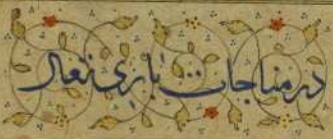 در مناجات باری تعالی